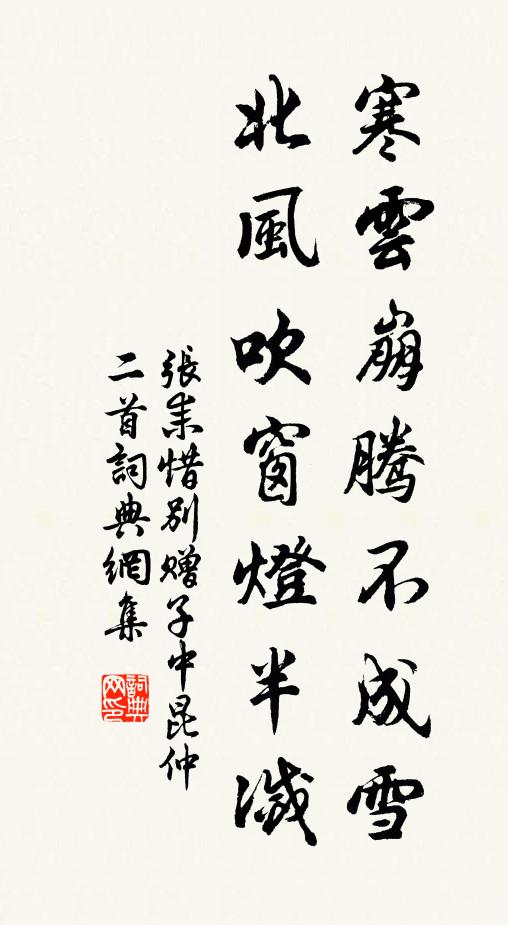 寒雲崩騰不成雪
北風吹窗燈半滅
張耒惜別贈子中昆仲
二首詞典網集
詞典网印